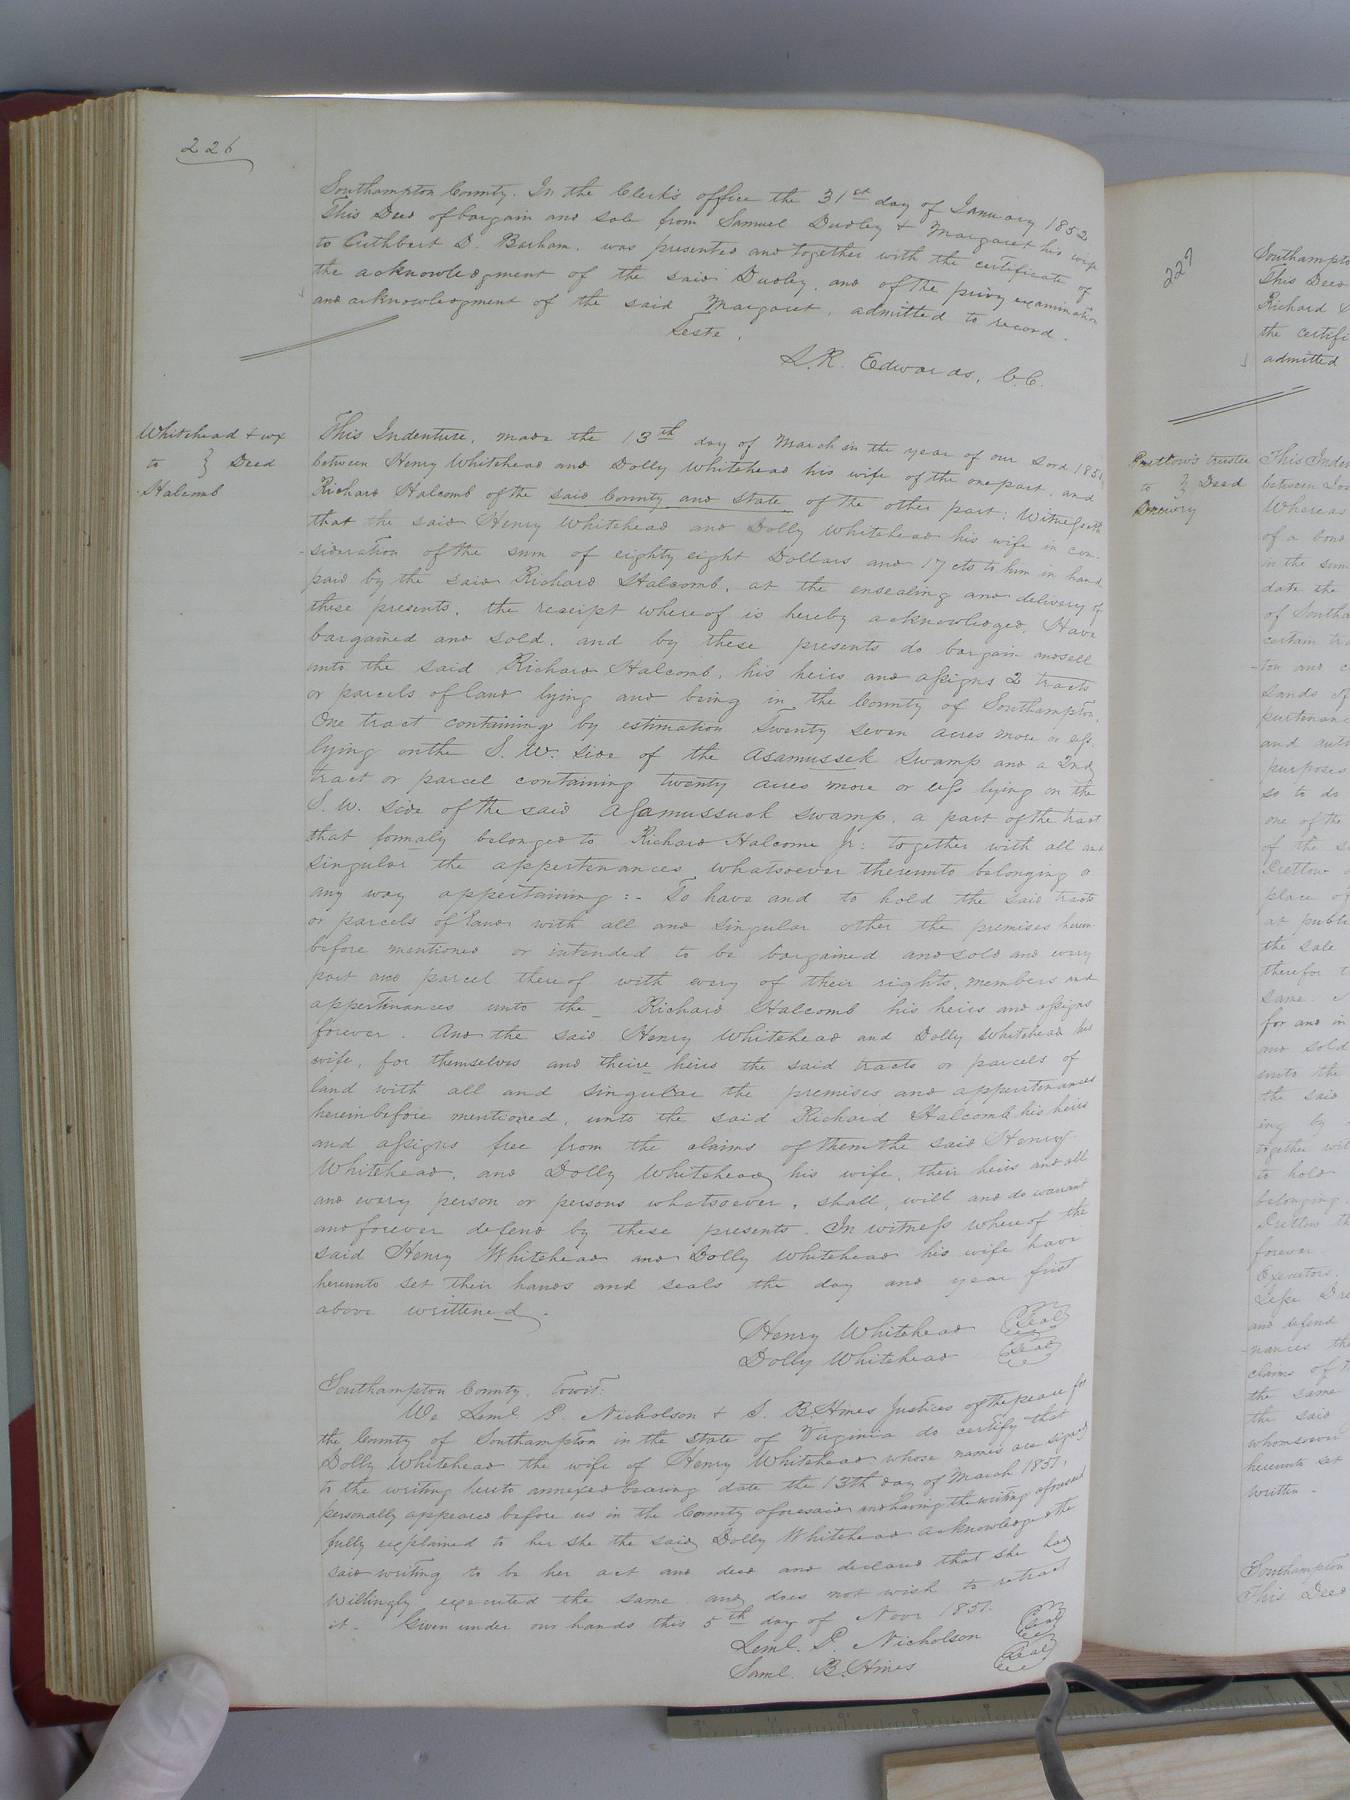 226
Southampton County. In the Clerk's office the 31st day of January 1852
This Deed of bargain and sale from Samuel Dudley & Margaret his wife
to Cuthbert D. Barham. was presented and together with the certificate of
the acknowledgment of the said Dudley, and of the privy examination
and acknowledgment of the said Margaret, admitted to record.
Teste,
L. R. Edwards, C.C.
Whitehead & wx
to } Deed
Halcomb
This Indenture, made the 13th day of March in the year of our Lord 1851
between Henry Whitehead and Dolly Whitehead his wife of the one part, and
Richard Halcomb of the said County and State of the other part: Witnesseth
that the said Henry Whitehead and Dolly Whitehead his wife in con-
-sideration of the sum of eighty eight Dollars and 17 cts to him in hand
paid by the said Richard Halcomb, at the ensealing and delivery of
these presents, the receipt whereof is hereby acknowledged, Have
bargained and sold, and by these presents do bargain and sell
unto the said Richard Halcomb, his heirs and assigns 2 tracts
or parcels of land lying and being in the County of Southampton,
One tract containing by estimation Twenty seven acres more or less.
lying on the S. W. side of the Asamussek Swamp and a 2nd
tract or parcel containing twenty acres more or less lying on the
S. W. side of the said Assamussuck swamp, a part of the tract
that formaly belonged to Richard Halcome Jr: together with all and
singular the appertenances whatsoever thereunto belonging or
any way appertaining:- To have and to hold the said tracts
or parcels of land with all and singular other the premises herein
before mentioned or intended to be bargained and sold and every
part and parcel thereof with every of their rights, members and
appertenances unto the Richard Halcomb his heirs and assigns
forever. And the said Henry Whitehead and Dolly Whitehead his
wife, for themselves and theire heirs the said tracts or parcels of
land with all and singular the premises and appertenances
herein before mentioned, unto the said Richard Halcomb his heirs
and assigns free from the claims of them the said Henry
Whitehead, and Dolly Whitehead his wife, their heirs and all
and every person or persons whatsoever, shall, will and do warrant
and forever defend by these presents. In witness whereof the
said Henry Whitehead and Dolly Whitehead his wife have
hereunto set their hands and seals the day and year first
above writtened.
Henry Whitehead Seal
Dolly Whitehead Seal
Southampton County, Towit:
We Leml. P. Nicholson & S. B. Hines Justices of the peace for
the County of Southampton in the State of Virginia do certify that
Dolly Whitehead the wife of Henry Whitehead whose names are signed
to the writing hereto annexed bearing date the 13th day of March 1851,
personally appeared before us in the County aforesaid and having the writing aforesaid
fully explained to her she the said Dolly Whitehead acknowledged the
said writing to be her act and deed and declared that she had
willingly executed the same and does not wish to retract
it. Given under our hands this 5th day of Novr 1851.
Leml. P. Nicholson Seal
Saml. B. Hines Seal
227
Southampto
This Deed
Richard
the certifi
admitted
Pretlow's trustee
to } Deed
Drewry
This Inden
between
Whereas
of a bond
in the sum
date the
of Southa
certain tra
-ton and c
Lands of
purtenanc
and auth
purposes
so to do
one of the
of the
Pretlow
place of
at publi
the sale
therefor
same.
for and in
and sold
unto the
the said
ing by
together wit
to hold
belonging
Pretlow th
forever.
Executors.
and defend
-nances the
claims of
the same
the said
whomsoever
hereunto set
written.
Southampton
This Deed